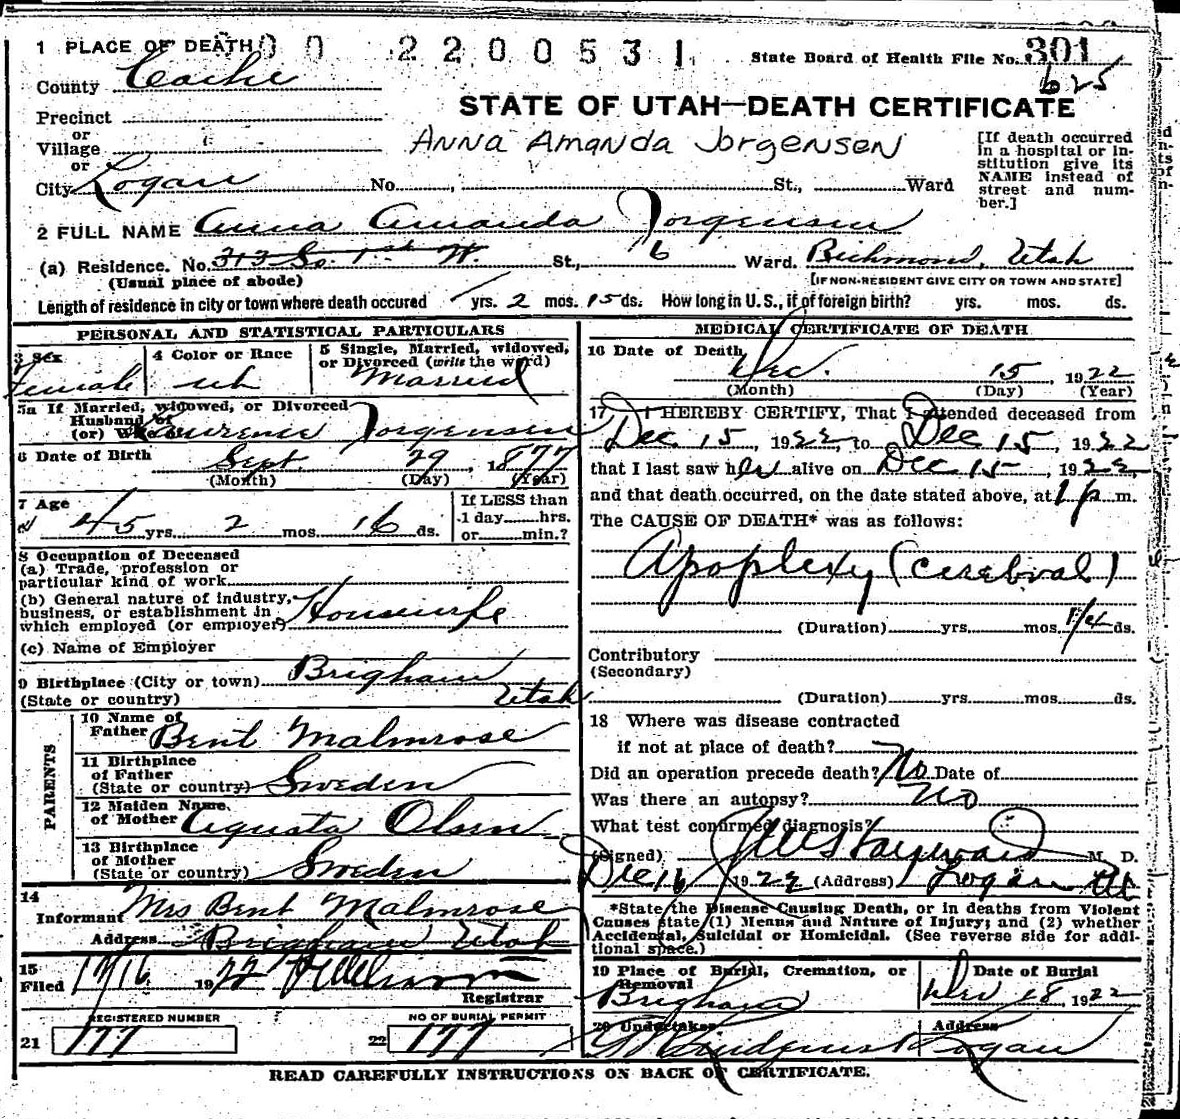 1 PLACE OF DEATH 00 2200531 State Board of Health File No. 301
County Cache 625
STATE OF UTAH—DEATH CERTIFICATE
Precinct
or
Village
or
City Logan No. , St., Ward
Anna Amanda Jorgensen
[If death occurred in a hospital or institution give its NAME instead of street and number.]
2 FULL NAME Anna Amanda Jorgensen
(a) Residence. No. 313 So. 1st W. St., 6 Ward. Richmond, Utah
(Usual place of abode) [IF NON-RESIDENT GIVE CITY OR TOWN AND STATE]
Length of residence in city or town where death occured yrs. 2 mos. 15 ds. How long in U.S., if of foreign birth? yrs. mos. ds.
PERSONAL AND STATISTICAL PARTICULARS
3 Sex Female
4 Color or Race wh
5 Single, Married, widowed, or Divorced (write the word) Married
5a If Married, widowed, or Divorced
Husband of
(or) Wife of Lawrence Jorgensen
6 Date of Birth Sept. 29, 1877
(Month) (Day) (Year)
7 Age 45 yrs. 2 mos. 16 ds.
If LESS than
1 day hrs.
or min.?
8 Occupation of Deceased
(a) Trade, profession or
particular kind of work
(b) General nature of industry,
business, or establishment in
which employed (or employer) Housewife
(c) Name of Employer
9 Birthplace (City or town) Brigham
(State or country) Utah
PARENTS
10 Name of
Father Bent Malmrose
11 Birthplace
of Father
(State or country) Sweden
12 Maiden Name
of Mother Agusta Olsen
13 Birthplace
of Mother
(State or country) Sweden
14
Informant Mrs Bent Malmrose
Address Brigham Utah
15
Filed 12/16 1922
Registrar
REGISTERED NUMBER NO OF BURIAL PERMIT
21 177 22 177
MEDICAL CERTIFICATE OF DEATH
16 Date of Death Dec. 15, 1922
(Month) (Day) (Year)
17 I HEREBY CERTIFY, That I attended deceased from
Dec 15, 1922, to Dec 15, 1922
that I last saw her alive on Dec 15, 1922,
and that death occurred, on the date stated above, at 1 p m.
The CAUSE OF DEATH* was as follows:
Apoplexy (cerebral)
(Duration) yrs. mos. 1/4 ds.
Contributory
(Secondary)
(Duration) yrs. mos. ds.
18 Where was disease contracted
if not at place of death?
Did an operation precede death? No Date of
Was there an autopsy? No
What test confirmed diagnosis?
(Signed) Hayward M. D.
Dec 16, 1922 (Address) Logan Ut
*State the Disease Causing Death, or in deaths from Violent
Causes state (1) Means and Nature of Injury; and (2) whether
Accidental, Suicidal or Homicidal. (See reverse side for addi-
tional space.)
19 Place of Burial, Cremation, or
Removal
Brigham
Date of Burial
Dec 18, 1922
20 Undertaker Address
Logan
READ CAREFULLY INSTRUCTIONS ON BACK OF CERTIFICATE.